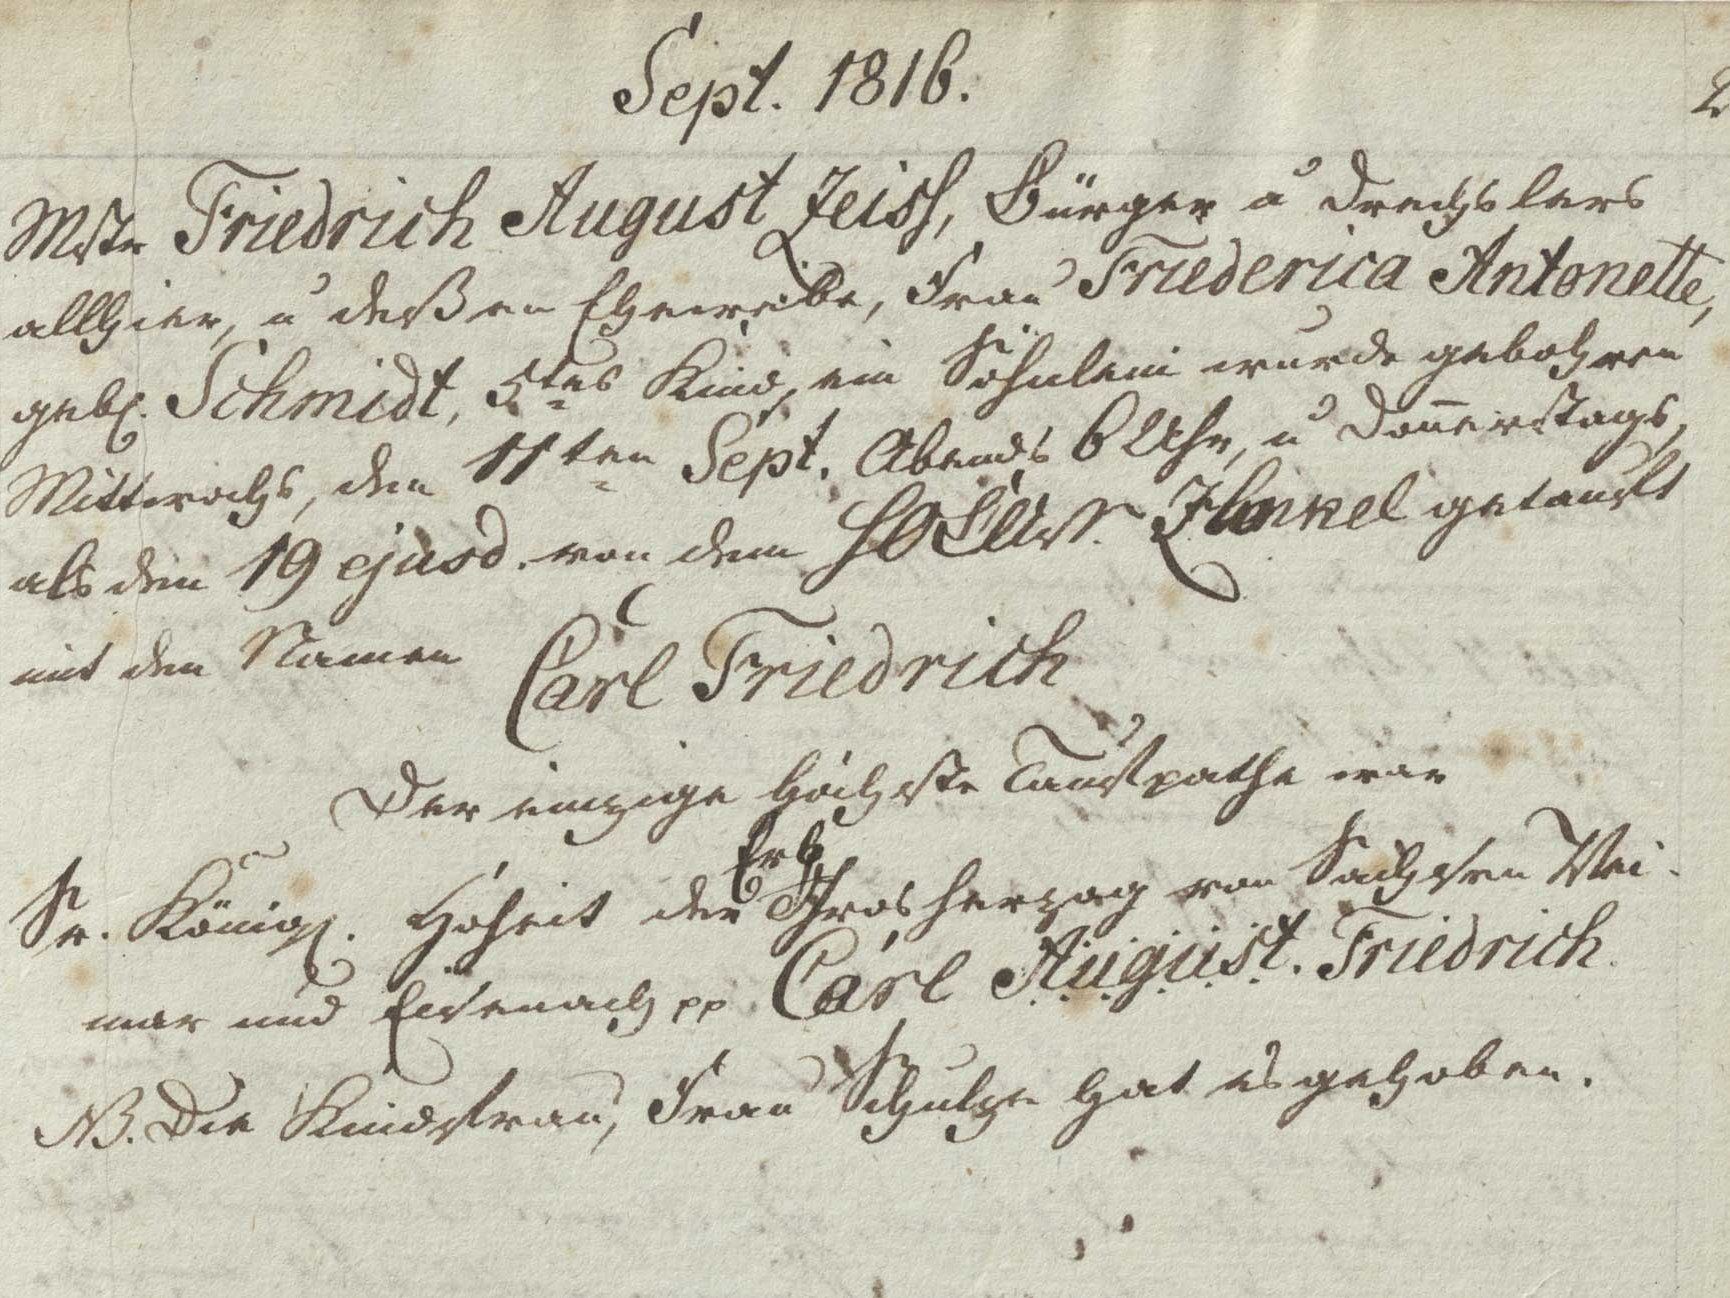 Sept. 1816.
Mstr Friedrich August Zeiss, Bürger u Drechslers
allhier, u deßen Eheweibe, Frau Friederica Antonette,
gebl. Schmidt, 5tes Kind, ein Söhnlein wurde gebohren
Mittwochs, den 11ten Sept. Abends 6 Uhr, u Donnerstags,
als den 19 ejusd. von dem getauft
mit den Namen Carl Friedrich
Der einzige höchste Taufpathe war
Erb
Sr. Königl. Hoheit der Grosherzog von Sachsen Wei-
mar und Eisenach pp Carl August. Friedrich.
NB. Die Kindfrau, Frau Schulze hat es gehoben.